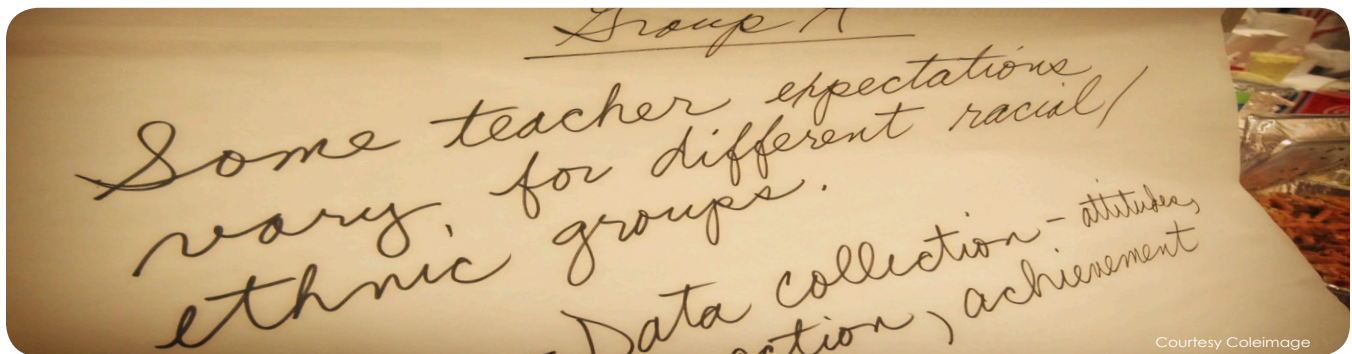 Group A
Some teacher expectations
vary, for different racial/
ethnic groups.
Data collection - attitudes,
achievement
Courtesy Coleimage